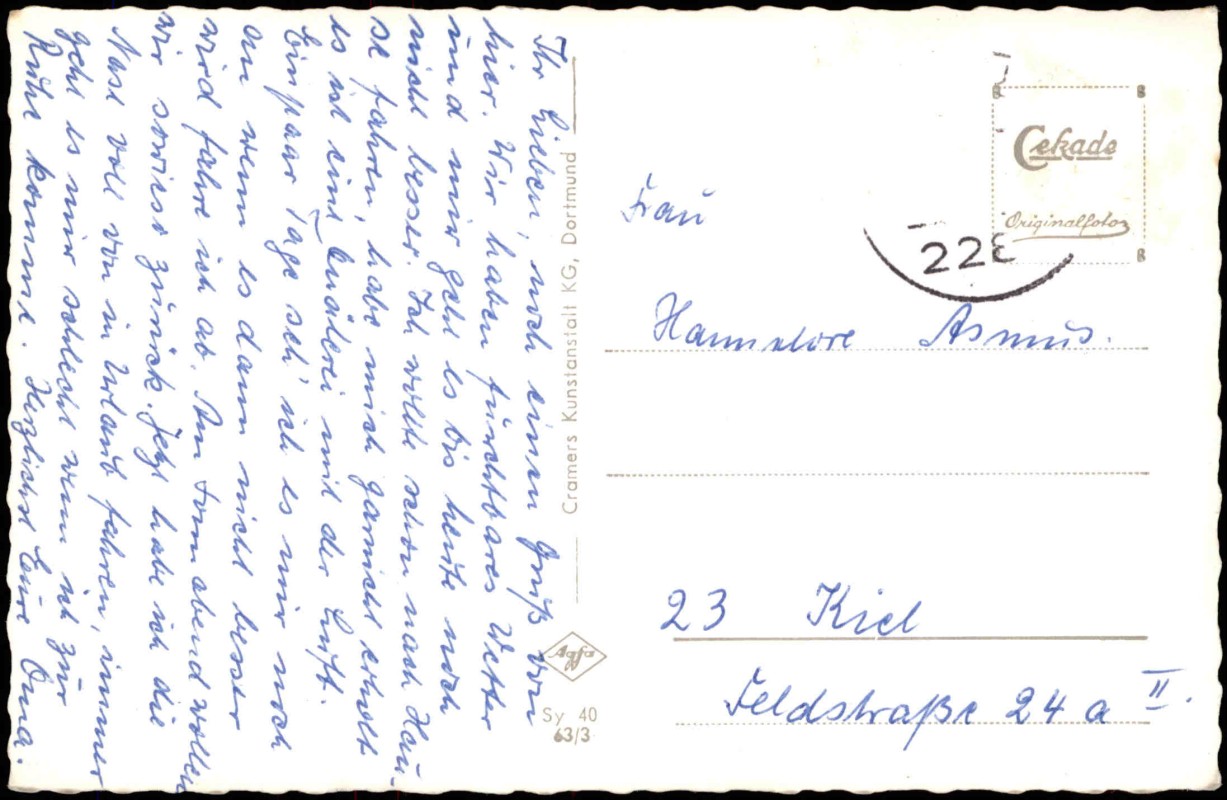 Ihr Lieben, noch einen Gruß von
hier. Wir haben furchtbares Wetter
und mir geht es bis heute noch
nicht besser. Ich wollte schon nach Hau-
se fahren, habe mich garnicht erholt
es ist eine Quälerei mit der Luft.
Ein paar Tage seh' ich es mir noch
an wenn es dann nicht besser
wird fahre ich ab. Am Sonnabend wollen
wir sowieso zurück. Jetzt habe ich die
Nase voll von in Urlaub fahren, immer
geht es mir schlecht wenn ich zur
Ruhe komme. Herzlichst Eure Oma.
Cramers Kunstanstalt KG, Dortmund
Agfa
Sy 40
63/3
Cekade
Originalfoto
22
Frau
Hannelore Asmus.
23 Kiel
Feldstraße 24 a II.